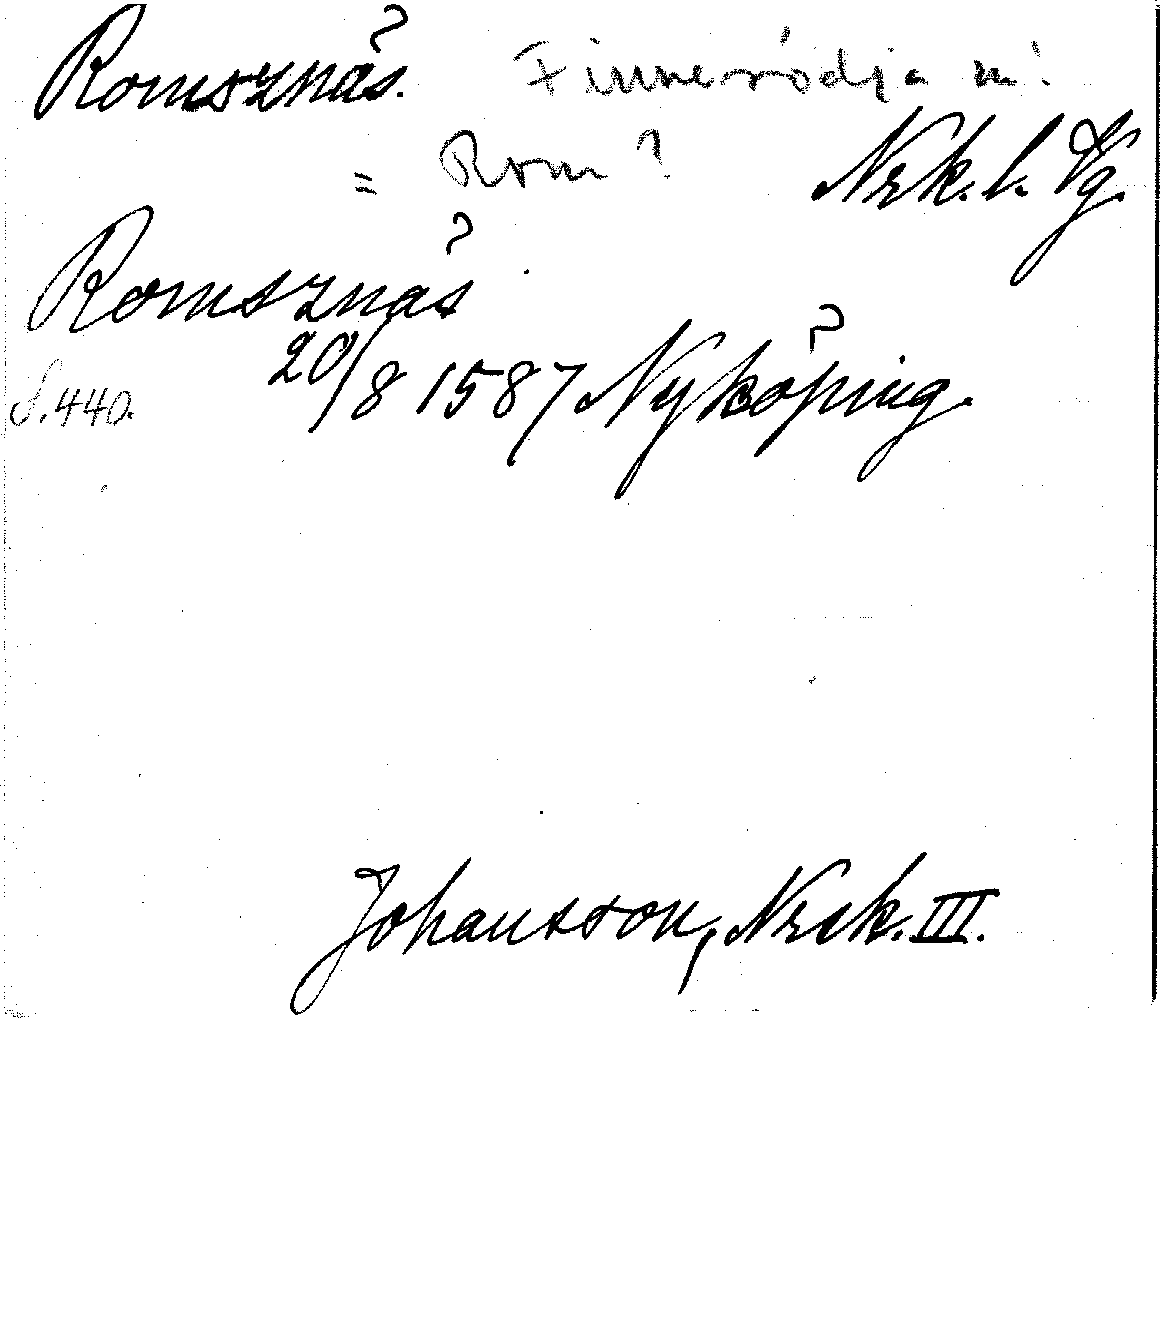 Romsznäs. ? Finnerödja sn!
= Rom?
Nrk. l. Vg.
Romsznäs ?
S. 440. 20/8 1587 Nyköping. ?
Johansson, Nrck. III.